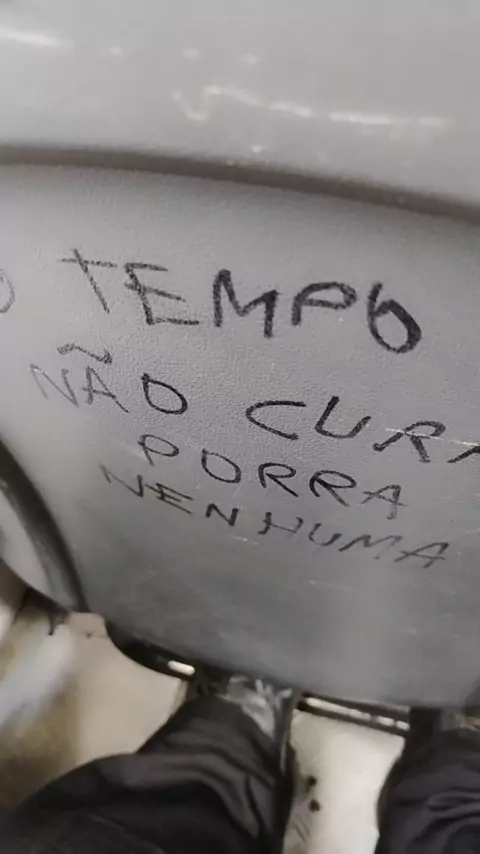 O TEMPO
NÃO CURA
PORRA
NENHUMA